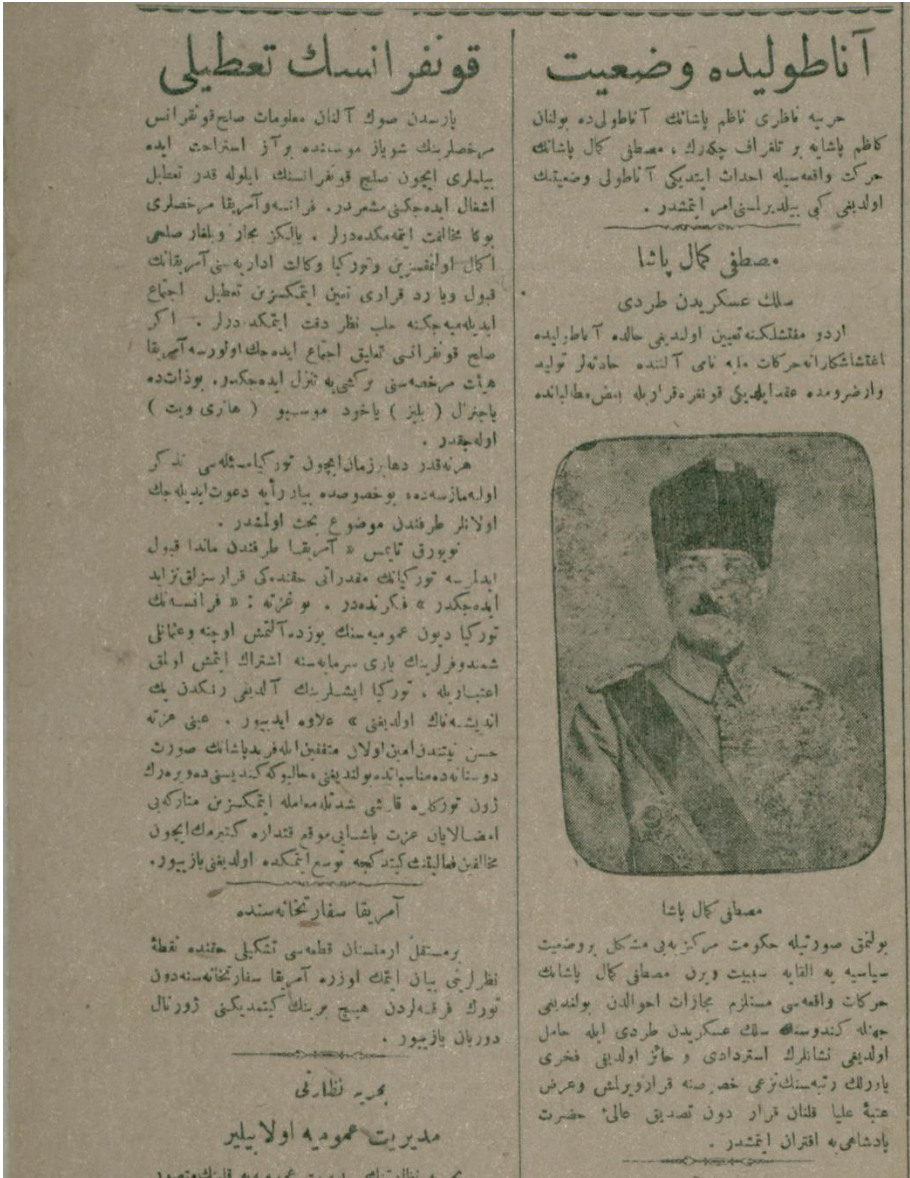 آناطولیده وضعیت
حربیه ناظری ناظم پاشانك آناطولی‌ده بولنان
كاظم پاشایه بر تلغراف چكەرك ، مصطفی كمال پاشانك
حركت واقعه‌سیله احداث ایتدیكی آناطولی وضعیتنك
اولدیغی كبی بیلدیرلمسنی امر ایتمشدر .
مصطفی كمال پاشا
سلك عسكریدن طردی
اردو مفتشلكنه تعیین اولندیغی حالده آناطولیده
اغتشاشكارانه حركات ملیه نامی آلتنده حادثه‌لر تولید
وارضرومده عقد ایلدیكی قونغره قراریله بعض مطالباتده
مصطفی كمال پاشا
بولنمق صورتیله حكومت مركزیه‌یی مشكل بر وضعیت
سیاسیه یه القایه سببیت ویرن مصطفی كمال پاشانك
حركات واقعه‌سی مستلزم مجازات احوالدن بولندیغی
جهتله كندوسنك سلك عسكریدن طردی ایله حامل
اولدیغی نشانلرك استردادی و حائز اولدیغی فخری
یاورلك رتبه‌سنك نزعی خصوصنه قرار ویرلمش وعرض
عتبۀ علیا قلنان قرار دون تصدیق عالئ حضرت
پادشاهی‌یه اقتران ایتمشدر .
قونفرانسك تعطیلی
پارسدن صوك آلنان معلومات صلح قونفرانس
مرخصلرینك شو یاز موسمنده بر آز استراحت ایده
بیلملری ایچون صلح قونفرانسنك ایلوله قدر تعطیل
اشغال ایده‌جكنی مشعردر . فرانسه وآمریقا مرخصلری
بوكا مخالفت ایتمه‌كده‌درلر . یالكز مجار وبلغار صلحی
اكمال اولنمقسزین وتوركیا وكالت اداره‌سنی آمریقانك
قبول ویا رد قراری تعیین ایتمكسزین تعطیل اجتماع
ایدیله‌میه‌جكنه جلب نظر دقت ایتمكده‌درلر . اكر
صلح قونفرانسی تعلیق اجتماع ایده‌جك اولورسه آمریقا
هیئت مرخصه‌سنی بر كشی‌یه تنزل ایده‌جكدر . بو ذات ده
یا جنرال ( بلیز ) یاخود موسیو ( هانری ویت )
اوله‌جقدر .
هر نه‌قدر دها بر زمان ایچون توركیا مسئله‌سی تذكر
اولنه‌مازسه‌ده ، بو خصوصده بیان رأیه دعوت ایدیله‌جك
اولانلر طرفندن موضوع بحث اولمشدر .
نویورق تایمس « آمریقا طرفندن ماندا قبول
ایدلمزسه توركیانك مقدراتی حقنده‌كی قرارسزلق تزاید
ایده‌جكدر » فكرنده‌در . بو غزته : « فرانسه‌نك
توركیا دیون عمومیه‌سنك یوزده آلتمش اوچنه وعثمانلی
شمندوفرلرینك یاری سرمایه‌سنه اشتراك ایتمش اولمق
اعتباریله ، توركیا ایشلرینك آلدیغی رنكدن پك
اندیشه‌ناك اولدیغنی » علاوه ایدییور . عینی غزته
حسن نیتندن امین اولان متفقین ایله فرید پاشانك صورت
دوستانه‌ده مناسباتده بولندیغنی ، حالبوكه كندیسنی ده‌ویره‌رك
ژون توركلره قارشی شدتله معامله ایتمكسزین متاركه‌یی
امضالایان عزت پاشایی موقع اقتداره كتیرمك ایچون
مخالفین فعالیتك كیتدكجه توسع ایتمكده اولدیغنی یازییور.
آمریقا سفارتخانه‌سنده
بر مستقل ارمنستان قطعه‌سی تشكیلی حقنده نقطۀ
نظرلرینی بیان ایتمك اوزره آمریقا سفارتخانه‌سنه دون
تورك فرقه‌لردن هیچ برینك كیتمدیكنی ژورنال
دوریان یازییور .
بحریه نظارتی
مدیریت عمومیه اولا بیلیر